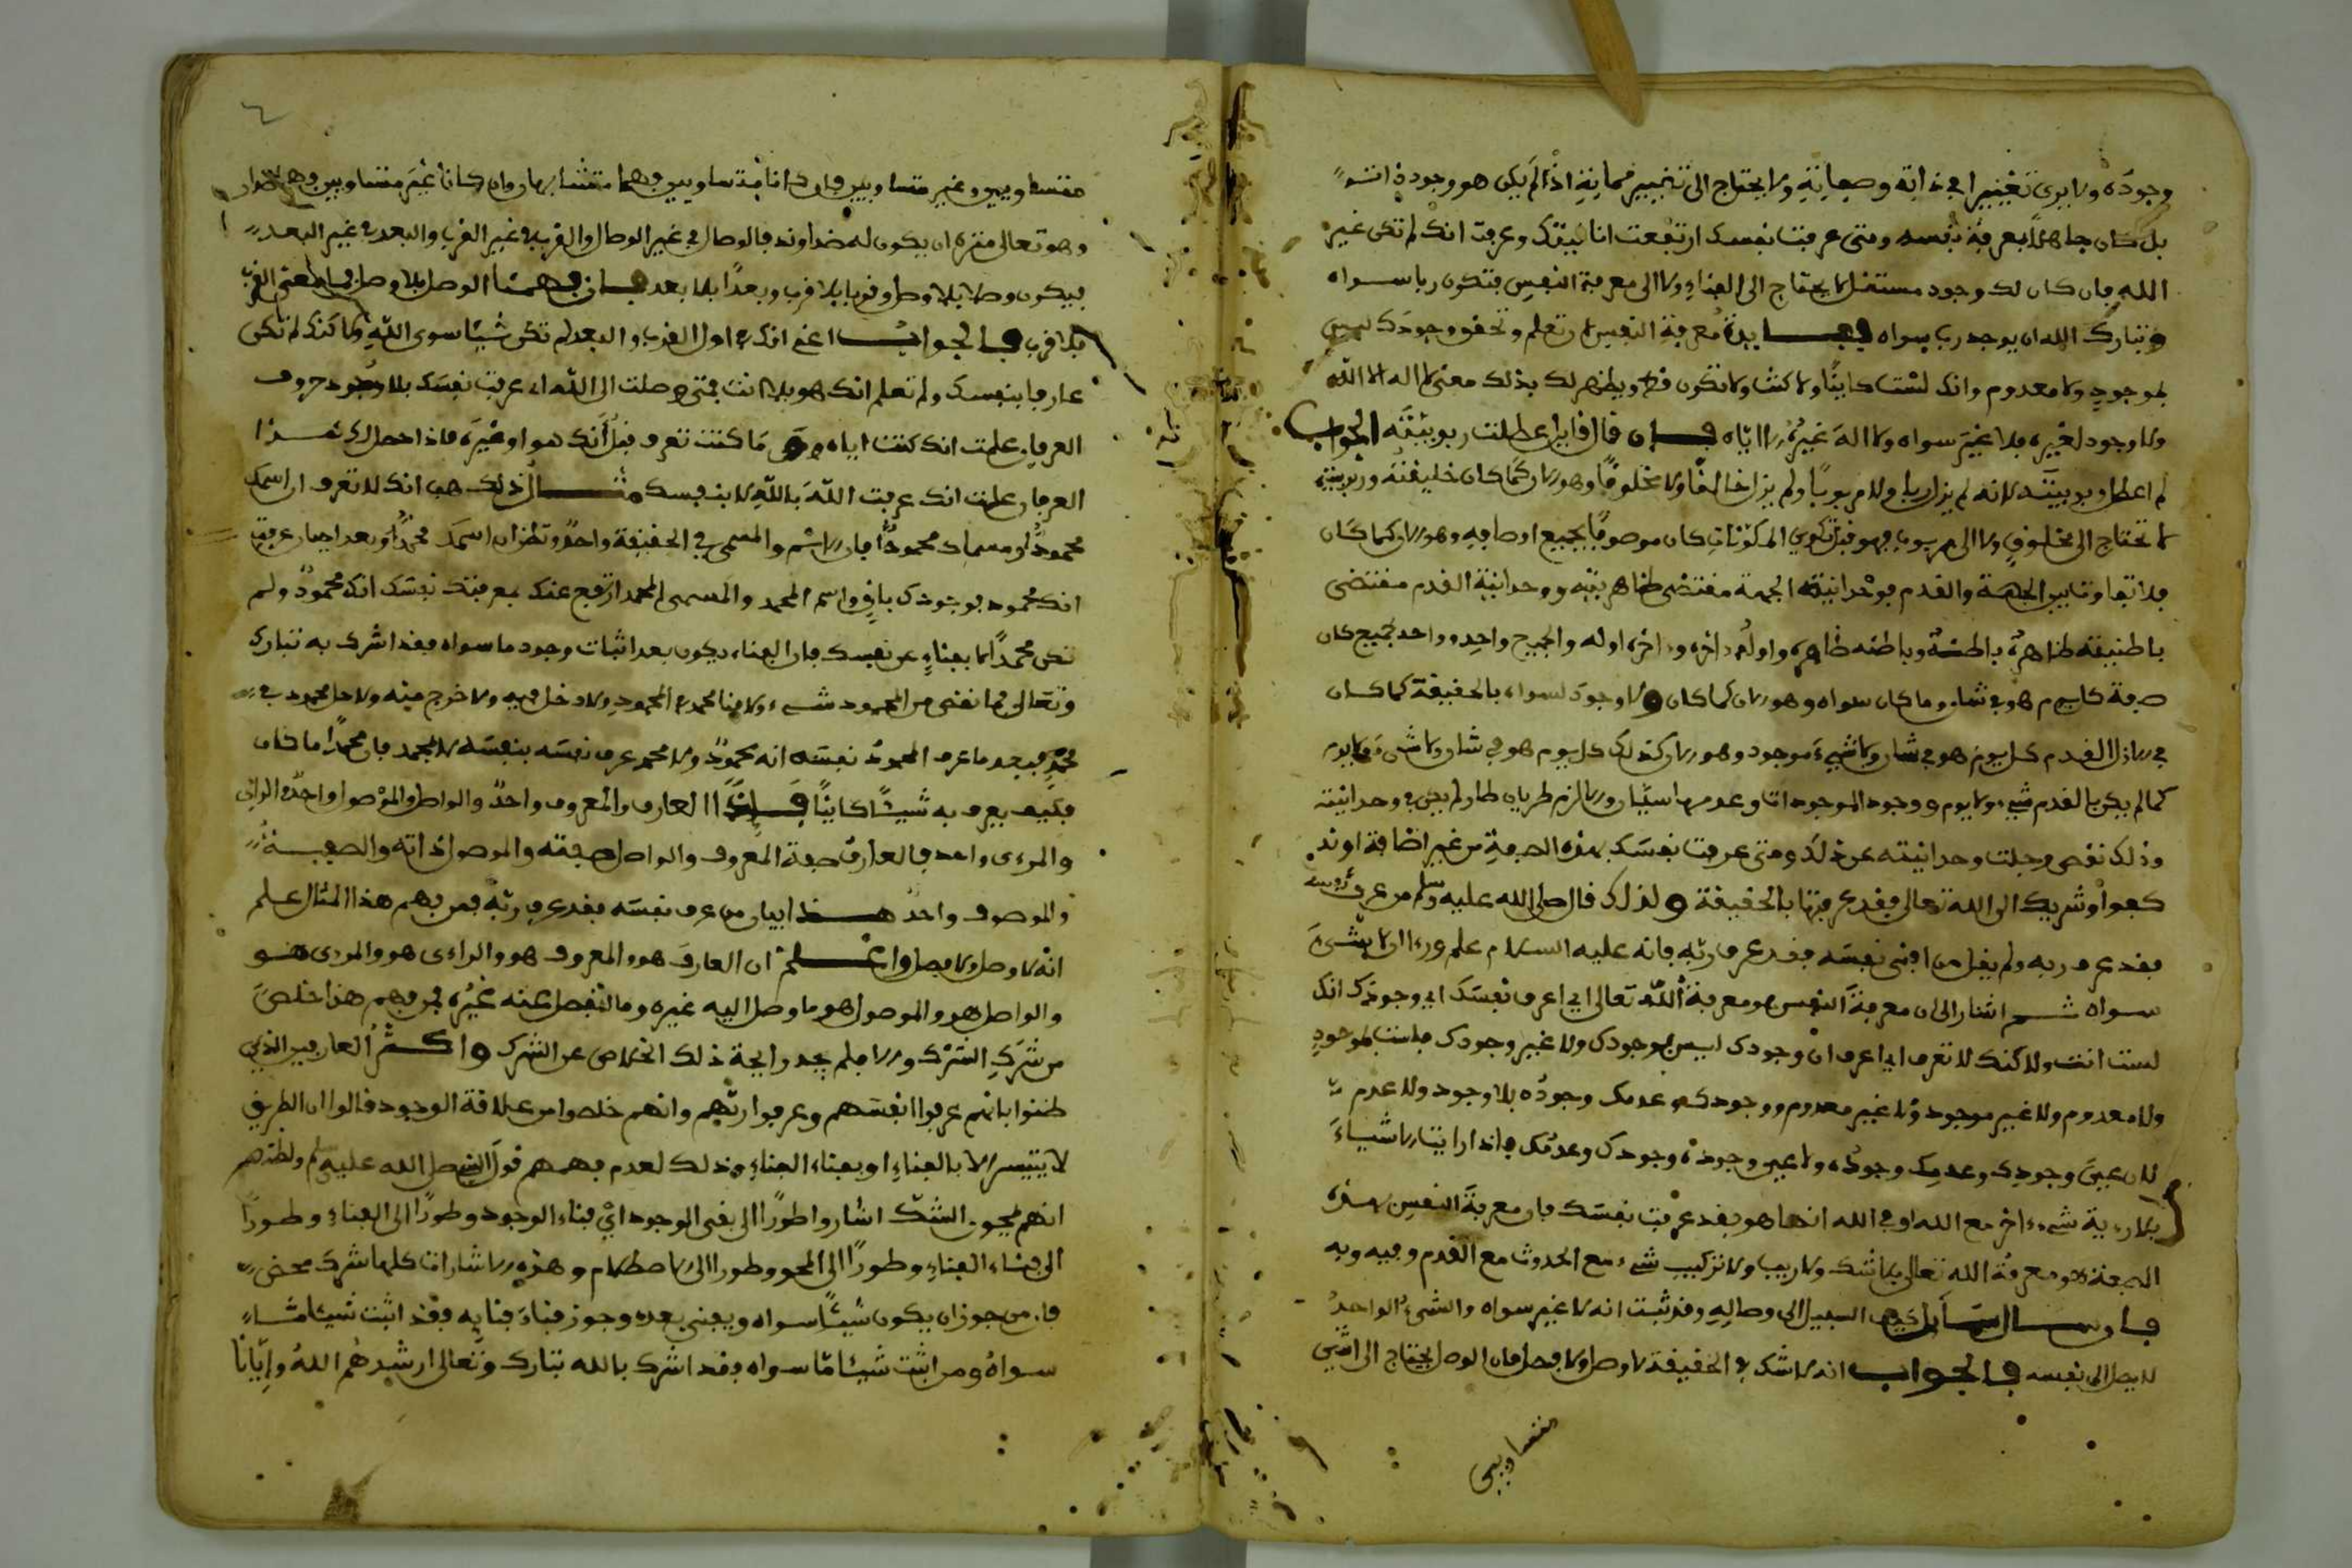 وجوده ولا يرى تغييرا في ذاته وصفاته ولا يحتاج الى تغيير فمانته اذا لم يكن هو وجوده انت
بل كان جاهلا بمعرفة نفسه ومتى عرفت نفسك ارتفعت انانيتك وعرفت انك لم تكن غير
الله فان كان لك وجود مستقل لا يحتاج الى الفناء ولا الى معرفة النفس فتكون ربا سواه
وتبارك الله ان يوجد رب سواه ففايدة معرفة النفس ان تعلم وتحقق وجودك ليس
بموجود ولا معدوم وانك لست كاينا ولا كنت ولا تكون قط ويظهر لك بذلك معنى لا اله الا الله
ولا وجود لغيره فلا غير سواه ولا اله غيره الا اياه فان قال قايل عطلت ربوبيته الجواب
لم اعطل ربوبيته لانه لم يزل ربا ولا مربوبا ولم يزل خالقا ولا مخلوقا وهو الان كما كان خليقته وربوبيته
لا تحتاج الى مخلوق ولا الى مربوب فهو قبل تكوين المكونات كان موصوفا بجميع اوصافه وهو الان كما كان
فلا تفاوت بين الجهة والقدم فوحدانيته الجهة مقتضى ظاهريته ووحدانية القدم مقتضى
باطنيته ظاهره باطنه وباطنه ظاهره واوله اخره واخره اوله والجميع واحد وواحد الجميع كان
صفة كل يوم هو في شان وما كان سواه وهو الان كما كان ولا وجود لسواه بالحقيقة كما كان
في الازل القدم كل يوم هو في شان ولا شيء موجود وهو الان كذلك كل يوم هو في شان ولا شيء ولا يوم
كما لم يكن في القدم شيء ولا يوم ووجود الموجودات وعدمها سيان والا لزم طريان طار لم يكن في وحدانيته
وذلك نقص وجلت وحدانيته عن ذلك ومتى عرفت نفسك بهذه الصفة من غير اضافة او ند
كفوا وشريك الى الله تعالى فقد عرفتها بالحقيقة ولذلك قال صلى الله عليه وسلم من عرف نفسه
فقد عرف ربه ولم يقل من افنى نفسه فقد عرف ربه فانه عليه السلام علم وراى ان لا شيء
سواه ثم اشار الى ان معرفة النفس هو معرفة الله تعالى اي اعرف نفسك اي وجودك انك
لست انت ولا كنك لا تعرف اي اعرف ان وجودك ليس بوجودك ولا غير وجودك فلست بموجود
ولا معدوم ولا غير موجود ولا غير معدوم ووجودك عدمك وجوده بلا وجود ولا عدم
لان عين وجودك وعدمك وجوده ولا عين وجوده وجودك وعدمك فاذا رايت الاشياء
بلا رؤية شيء اخر مع الله او في الله انها هو فقد عرفت نفسك فان معرفة النفس بهذه
الصفة هو معرفة الله تعالى بلا شك ولا ريب ولا تركيب شيء مع الحدوث مع القدم وفيه وبه
فان سال سائل كيف السبيل الى وصاله وقد ثبت انه لا غير سواه والشيء الواحد
لا يصل الى نفسه فالجواب انه لا شك في الحقيقة لا وصل ولا فصل فان الوصل يحتاج الى اثنين
متساويين
٦
متساويين وغير متساويين فان كانا متساويين فهما متشابهان وان كانا غير متساويين فهما ضدان
وهو تعالى منزه ان يكون له ضد او ند فالوصال في غير الوصال والقرب في غير القرب والبعد في غير البعد
فيكون وصلا بلا وصل وقربا بلا قرب وبعدا بلا بعد فان فهمنا الوصل بلا وصل فما معنى القرب
بلا قرب فالجواب اعني انك في اول القرب والبعد لم تكن شيئا سوى الله ولا كنك لم تكن
عارفا بنفسك ولم تعلم انك هو بلا انت فمتى وصلت الى الله اي عرفت نفسك بلا وجود حروف
العرفان علمت انك كنت اياه وما كنت تعرف قبل انك هو او غيره فاذا حصل لك هذا
العرفان علمت انك عرفت الله بالله لا بنفسك مثال ذلك هب انك لا تعرف ان اسمك
محمود او مسماك محمودا فان الاسم والمسمى في الحقيقة واحد وتظن ان اسمك محمد وبعد احيان عرفت
انك محمود فوجودك باق واسم المحمد والمسمى المحمد ارتفع عنك بمعرفتك نفسك انك محمود ولم
تكن محمدا اما بفناء عن نفسك فان الفناء يكون بعد اثبات وجود ما سواه فقد اشرك به تبارك
وتعالى فما نقص من المحمود شيء ولا فنا محمد في المحمود ولا دخل فيه ولا خرج منه ولا حل محمود في
محمد فبعد ما عرف المحمود نفسه انه محمود ولا محمد عرف نفسه بنفسه لا بمحمد فان محمدا ما كان
فكيف يعرف به شيئا كاينا فاذا العارف والمعروف واحد والواصل والموصول واحد والرائي
والمرءى واحد فالعارف صفة المعروف والواصل صفته والموصول ذاته والصفة
والموصوف واحد هذا بيان من عرف نفسه فقد عرف ربه فمن فهم هذا المثال علم
انه لا وصل ولا فصل واعلم ان العارف هو والمعروف هو والراءى هو والمرءى هو
والواصل هو والموصول هو ما وصل اليه غيره وما انفصل عنه غيره فمن فهم هذا خلص
من شرك الشرك والا فلم يجد رايحة ذلك الخلاص عن الشرك واكثر العارفين الذين
ظنوا بانهم عرفوا انفسهم وعرفوا ربهم وانهم خلصوا من علاقة الوجود قالوا ان الطريق
لا يتيسر الا بالفناء او بفناء الفناء وذلك لعدم فهمهم قول النبي صلى الله عليه وسلم ولظنهم
انهم بمحو الشك اشاروا طورا الى نفي الوجود اي فناء الوجود وطورا الى الفناء وطورا
الى فناء الفناء وطورا الى المحو وطورا الى الاصطلام وهذه الاشارات كلها شرك محض
فان من جوز ان يكون شيئا سواه ويفنى بعده وجوز فناء فنايه فقد اثبت شيئا ما
سواه ومن اثبت شيئا ما سواه فقد اشرك بالله تبارك وتعالى ارشدهم الله وايانا